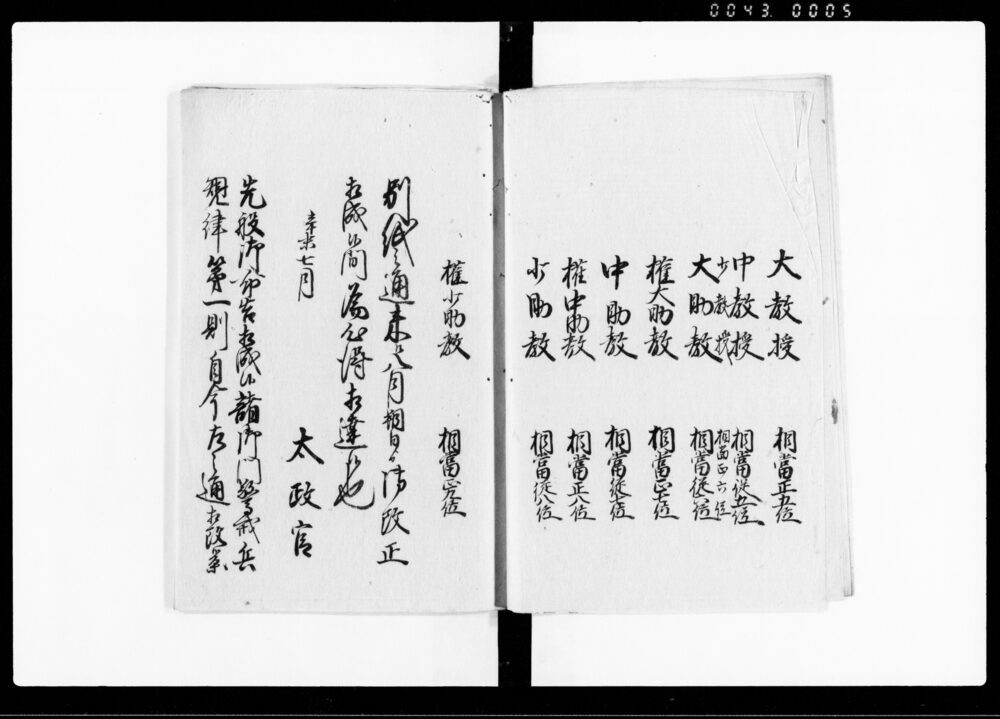 0043. 0005
大教授 相當正五位
中教授 相當従五位
少教授 相當正六位
大助教 相當従六位
權大助教 相當正七位
中助教 相當従七位
權中助教 相當正八位
少助教 相當従八位
權少助教 相當正九位
別紙之通来ル八月朔日ゟ御改正
相成候間為心得相達候也
辛未七月
太政官
先般御布告相成候諸御門警戒兵
規律第一則自今左之通相改